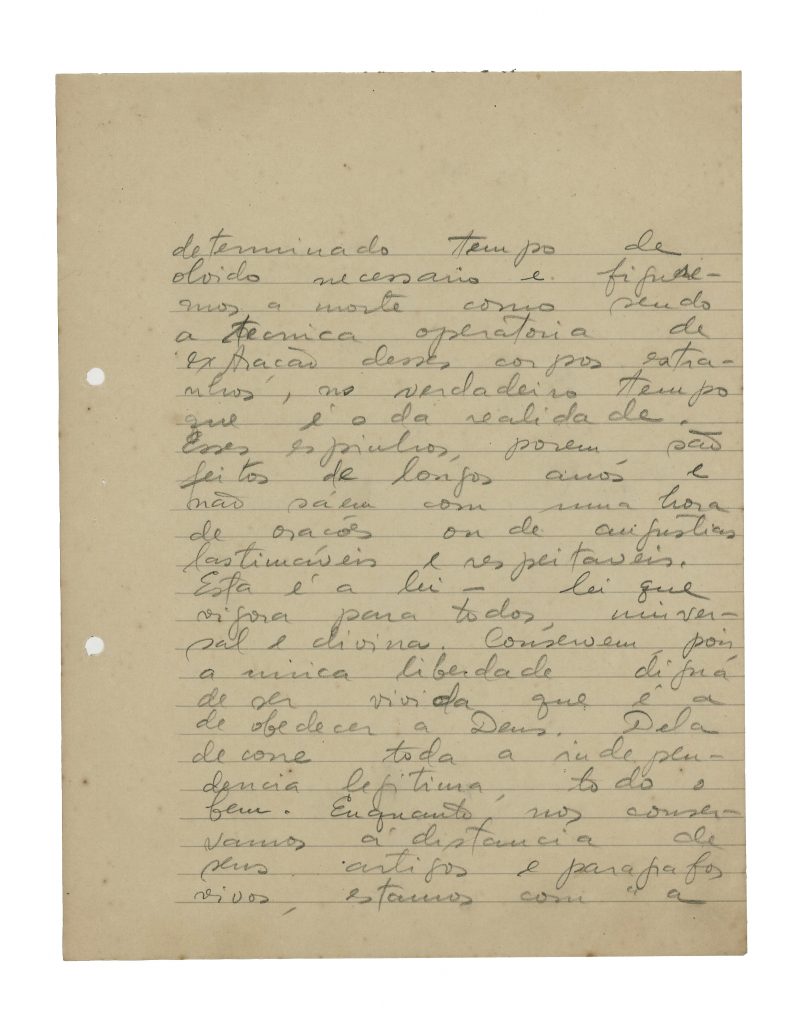 determinado tempo de
olvido necessario e figure-
mos a morte como sendo
a tecnica operatoria de
extração desses corpos estra-
nhos, no verdadeiro tempo
que é o da realidade.
Esses espinhos, porem são
feitos de longos anos e
não sáem com uma hora
de oracões ou de angustias
lastimáveis e respeitaveis.
Esta é a lei - lei que
vigora para todos, univer-
sal e divina. Conservem, pois
a unica liberdade digna
de ser vivida que é a
de obedecer a Deus. Dela
decorre toda a indepen-
dencia legitima, todo o
bem. Enquanto nos conser-
vamos á distancia de
seus artigos e paragrafos
vivos, estamos com "a